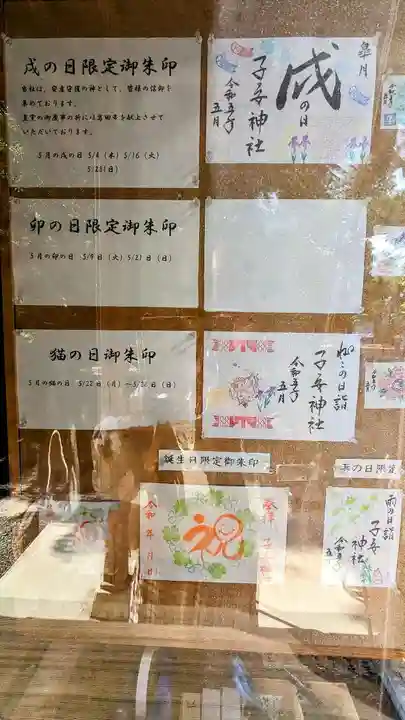 戌の日限定御朱印
当社は、安産守護の神として、皆様の信仰を
集めております。
皇室の御慶事の折には
いただいております。
5月の戌の日 5/4（木）5/16（火）
5/28（日）
皐月
戌の日
子安神社
令和五年
五月
卯の日限定御朱印
5月の卯の日 5/9（火）5/21（日）
猫の日御朱印
5月の猫の日 5/22（月）～5/28（日）
ねこの日詣
子安神社
令和五年
五月
誕生日限定御朱印
祝
令和 年 月 日
奉拝
雨の日限定
雨の日詣
子安
神社
令和五年